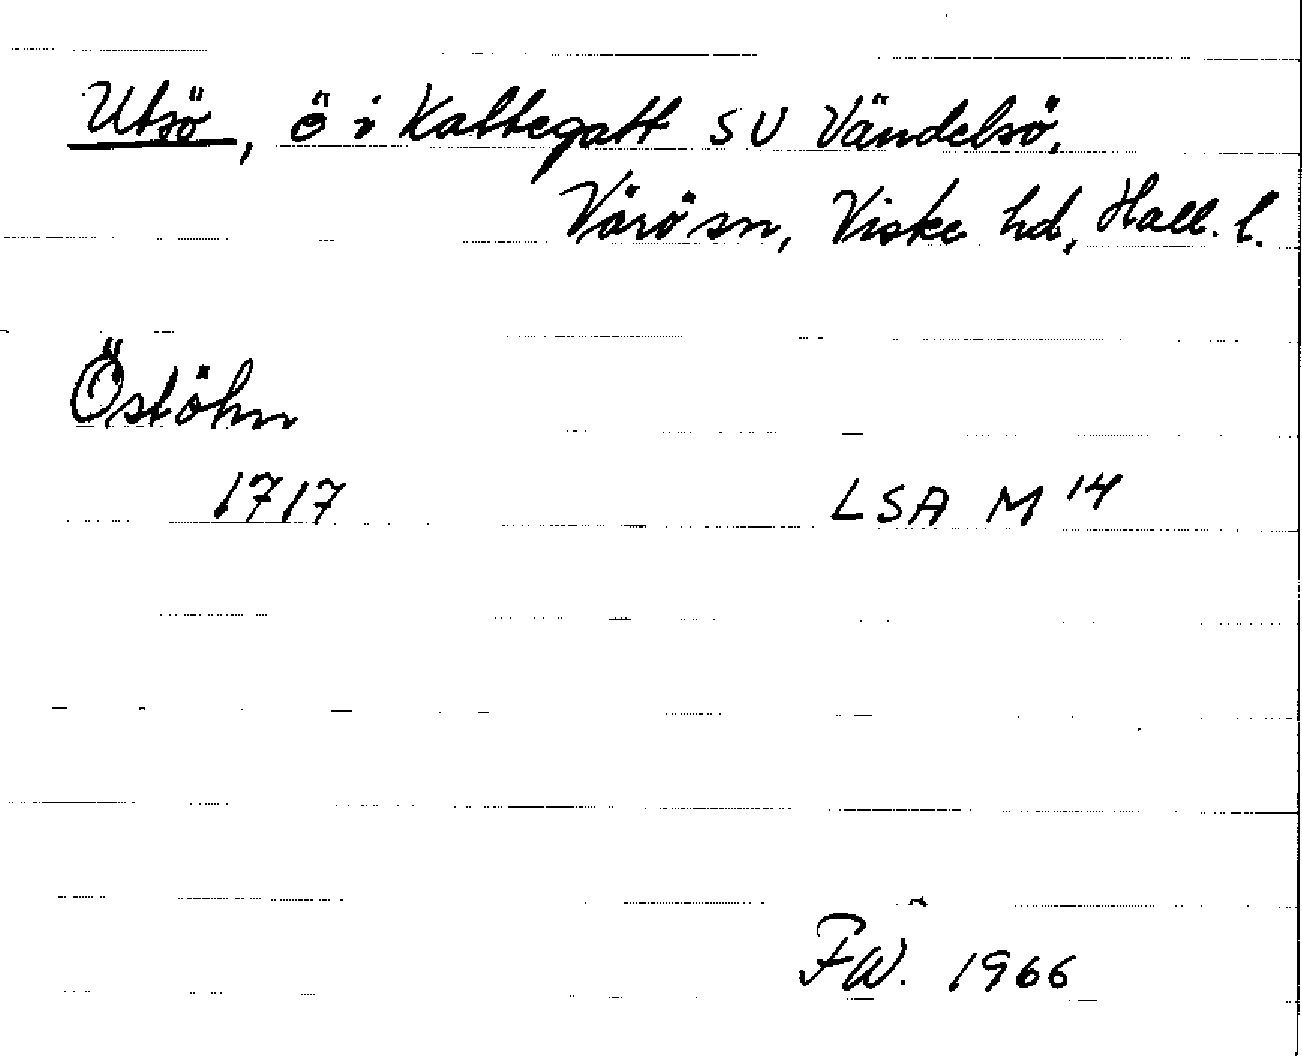 Utsö, ö i Kattegatt SV Vändelsö,
Värö sn, Viske hd, Hall. l.
Östöhn
1717 LSA M 14
FW. 1966